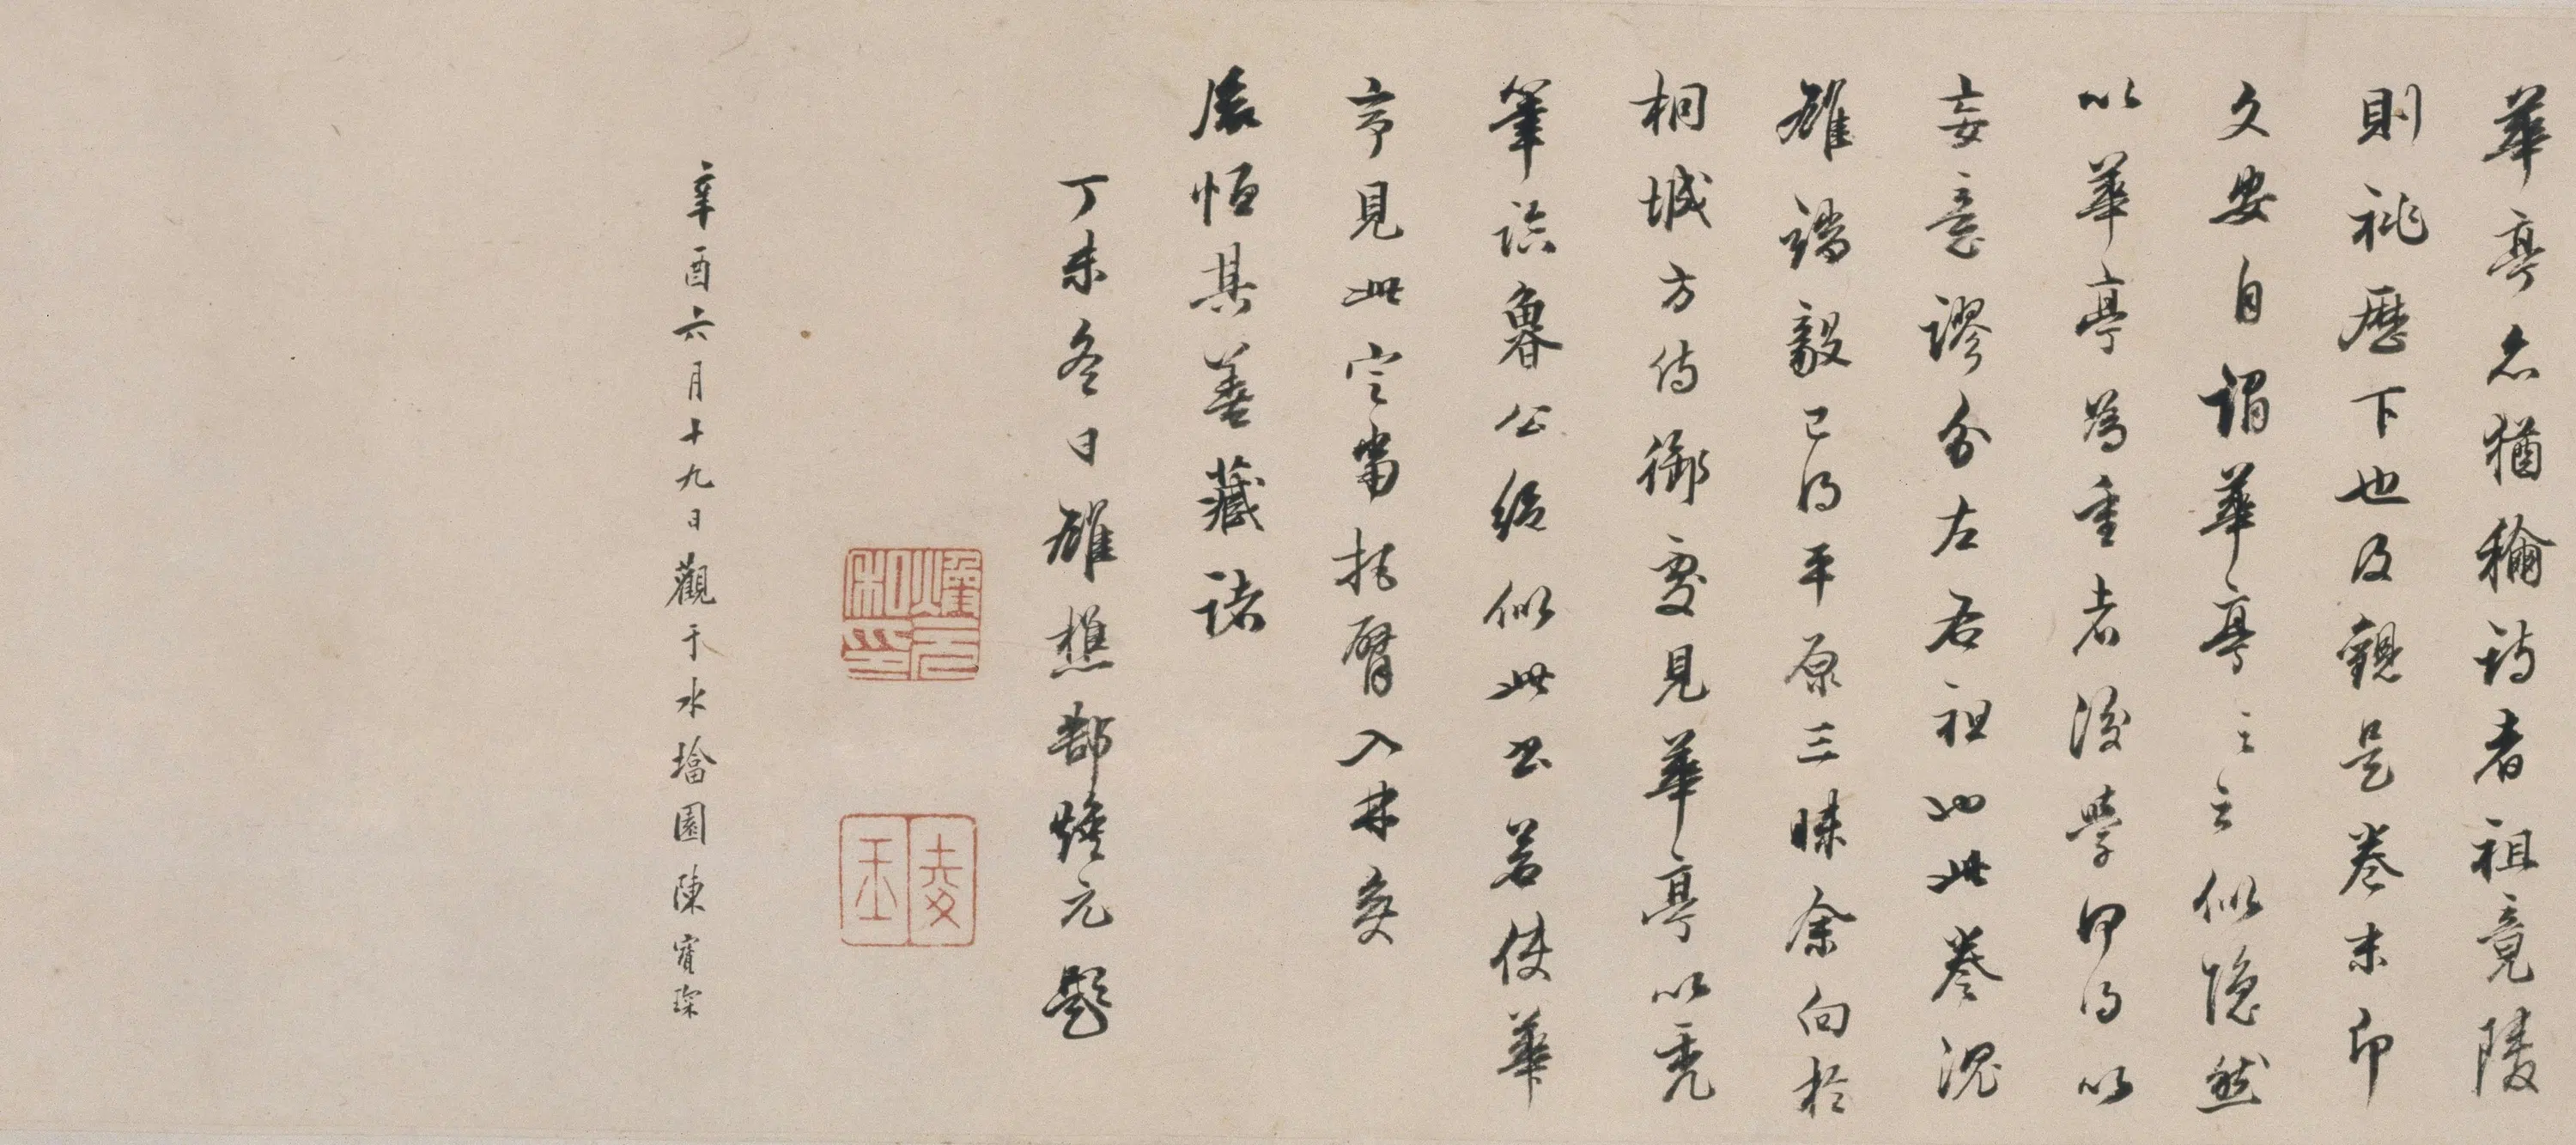 華亭亦猶稱詩者祖竟陵
則祧歷下也及觀是卷末印
文安自謂華亭似隱然
以華亭為重者後學那得以
妄意謬分左右袒也此卷
雒端毅已得平原三昧余向於
桐城方侍御處見華亭以禿
筆臨魯公絕似此書若使華
亭見此定當把臂入林矣
辰恒其善藏諸
丁未冬日雒樵郜煥元題
煥元私印
辛酉六月十九日觀于水墖園陳寶琛